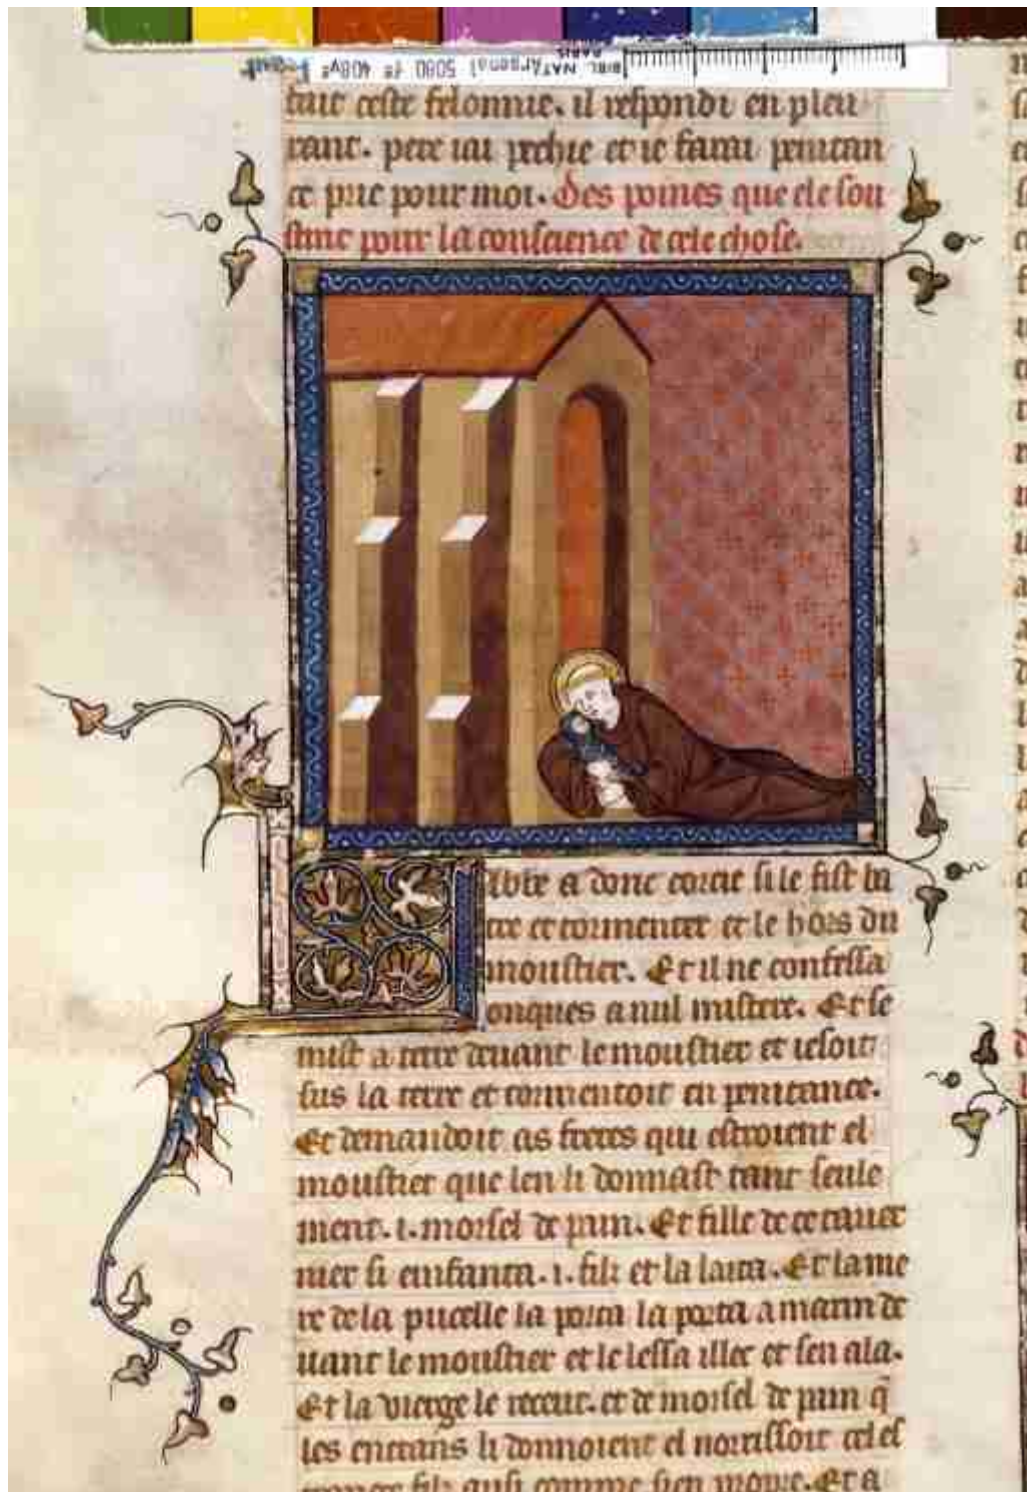 BIBL. NAT. PARIS
Arsenal 5080 fº 408vº
fait ceste felonnie. il respondi en pleu
rant. pere iai pechie et ie farai penitan
ce prie pour moi. Des poines que ele sou
stint pour la conscience de cele chose.
abbe a donc corcie si le fist ba
tre et tormenter et le hors du
moustier. Et il ne confessa
onques a nul mistere. Et se
mist a terre deuant le moustier et iesoit
sus la terre et tormentoit en penitance.
Et demandoit as freres qui estroient el
moustier que len li donnast tant seule
ment .i. morsel de pain. Et fille de ce tauer
nier si emfanta .i. filz et la laita. Et la me
re de la pucelle la porta la porta a matin de
uant le moustier et le lessa illec et sen ala.
Et la vierge le receut. et de morsel de pain q̄
les entrans li donnoient el norrissoit cel es
filz ausi comme sien propre. Et a